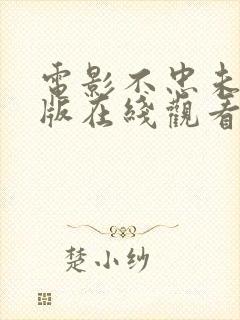 電影不忠未
版在綫觀看
楚小纱